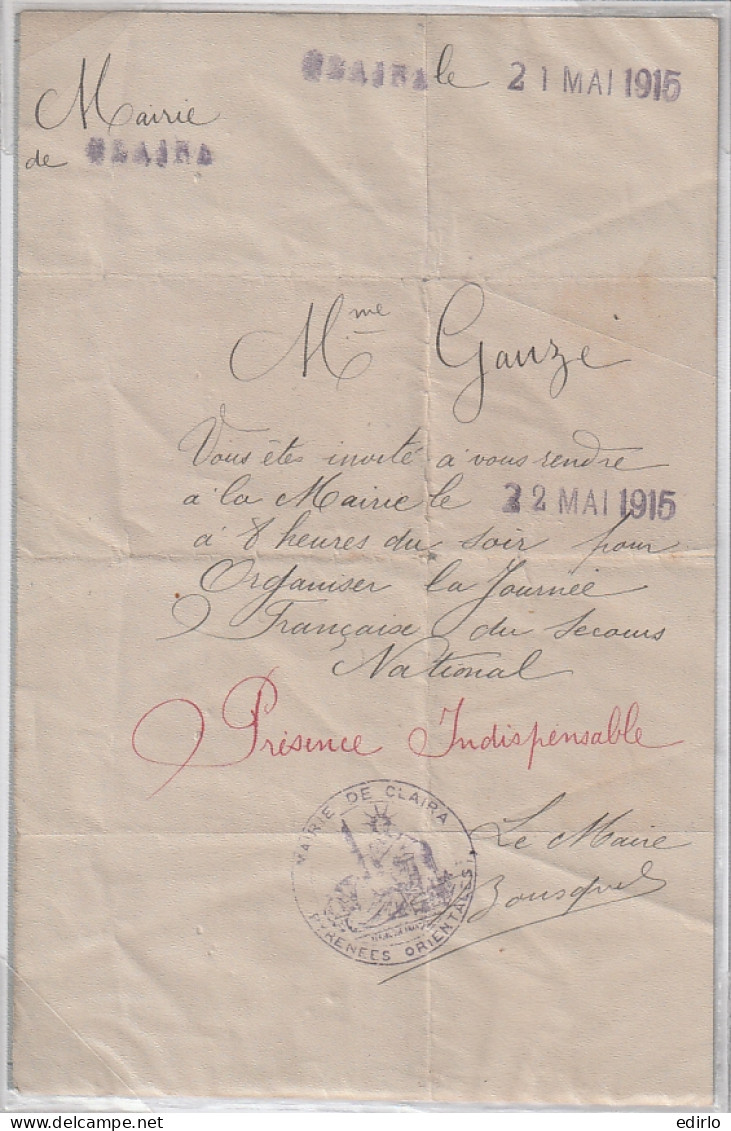 CLAIRA le 21 MAI 1915
Mairie
de CLAIRA
Mme Gauze
Vous êtes invité à vous rendre
à la Mairie le 22 MAI 1915
à 8 heures du soir pour
Organiser la Journée
Française du Secours
National
Présence Indispensable
MAIRIE DE CLAIRA
PYRENEES ORIENTALES
Le Maire
Bousquet
edirlo
delcampe.net